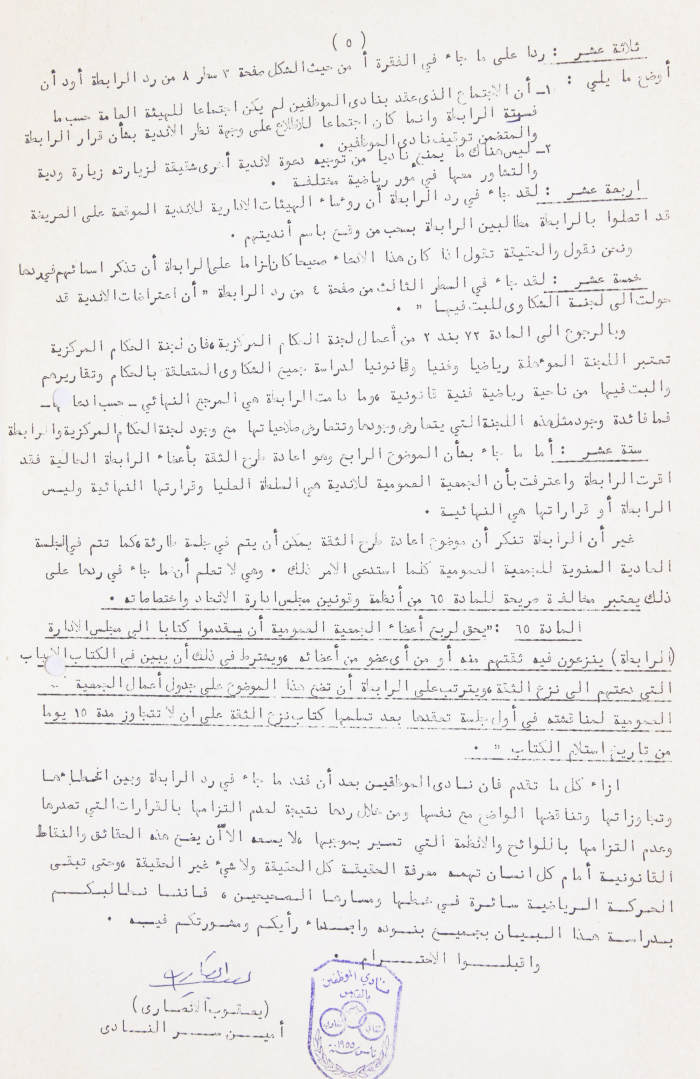 ( ٥ )
ثلاثة عشر : ردا على ما جاء في الفقرة أ من حيث الشكل صفحة ٣ سطر ٨ من رد الرابطة أود أن
أوضح ما يلي :
١ـ أن الاجتماع الذى عقد بنادى الموظفين لم يكن اجتماعا للهيئة العامة حسب ما
فسرته الرابطة وانما كان اجتماعا للاطلاع على وجهة نظر الاندية بشأن قرار الرابطة
والمتضمن توقيف نادى الموظفين .
٢ـ ليس هناك ما يمنع ناديا من توجيه دعوة لاندية أخرى شقيقة لزيارته زيارة ودية
والتشاور معها في أمور رياضية مختلفة .
اربعة عشر : لقد جاء في رد الرابطة أن روءساء الهيئات الادارية للاندية الموقعة على العريضة
قد اتصلوا بالرابطة مطالبين الرابطة بسحب من وقع باسم أنديتهم .
ونحن نقول والحقيقة تقول اذا كان هذا الادعاء صحيحا كان لزاما على الرابطة أن تذكر اسمائهم في ردها
خمسة عشر : لقد جاء في السطر الثالث من صفحة ٤ من رد الرابطة " أن اعتراضات الاندية قد
حولت الى لجنة الشكاوى للبت فيها " .
وبالرجوع الى المادة ٧٢ بند ٢ من أعمال لجنة الحكام المركزية ، فان لجنة الحكام المركزية
تعتبر اللجنة الموءهلة رياضيا وفنيا وقانونيا لدراسة جميع الشكاوى المتعلقة بالحكام وتقاريرهم
والبت فيها من ناحية رياضية فنية قانونية ، وما دامت الرابطة هي المرجع النهائي ـ حسب ادعائها ـ
فما فائدة وجود مثل هذه اللجنة التي يتعارض وجودها وتتعارض صلاحياتها مع وجود لجنة الحكام المركزية والرابطة
ستة عشر : أما ما جاء بشأن الموضوع الرابع وهو اعادة طرح الثقة بأعضاء الرابطة الحالية فقد
اقرت الرابطة واعترفت بأن الجمعية العمومية للاندية هي السلطة العليا وقرارتها النهائية وليس
الرابطة أو قراراتها هي النهائية .
غير أن الرابطة تنكر أن موضوع اعادة طرح الثقة يمكن أن يتم في جلسة طارئة ، كما تتم في الجلسة
العادية السنوية للجمعية العمومية كلما استدعى الامر ذلك . وهي لا تعلم أن ما جاء في ردها على
ذلك يعتبر مخالفة صريحة للمادة ٦٥ من أنظمة وقونين مجلس ادارة الاتحاد واختصاصاته .
المادة ٦٥ : "يحق لربع أعضاء الجمعية العمومية أن يتقدموا كتابا الى مجلس الادارة
(الرابطة) ينزعون فيه ثقتهم منه أو من أى عضو من أعضائه ، ويشترط في ذلك أن يبين في الكتاب الاسباب
التي دعتهم الى نزع الثقة ، ويترتب على الرابطة أن تضع هذا الموضوع على جدول أعمال الجمعية
العمومية لمناقشته في أول جلسة تعقدها بعد تسلمها كتاب نزع الثقة على ان لا تتجاوز مدة ١٥ يوما
من تاريخ استلام الكتاب " .
ازاء كل ما تقدم فان نادى الموظفين بعد أن فند ما جاء في رد الرابطة وبين اخطاءها
وتجاوزاتها وتناقضها الواضح مع نفسها ومن خلال ردها نتيجة لعدم التزامها بالقرارات التي تصدرها
وعدم التزامها باللوائح والانظمة التي تسير بموجبها ، لا يسعه الا أن يضع هذه الحقائق والنقاط
القانونية أمام كل انسان تهمه معرفة الحقيقة كل الحقيقة ولا شيء غير الحقيقة ، وحتى تبقى
الحركة الرياضية سائرة في خطها ومسارها الصحيحين ، فاننا نطالبكم
بدراسة هذا البيان بجميع بنوده وابداء رأيكم ومشورتكم فيه .
واقبلوا الاحترام .
(يعقوب الانصارى)
أمين سر النادى
نادي الموظفين
بالقدس
تأسس سنة ١٩٥٥